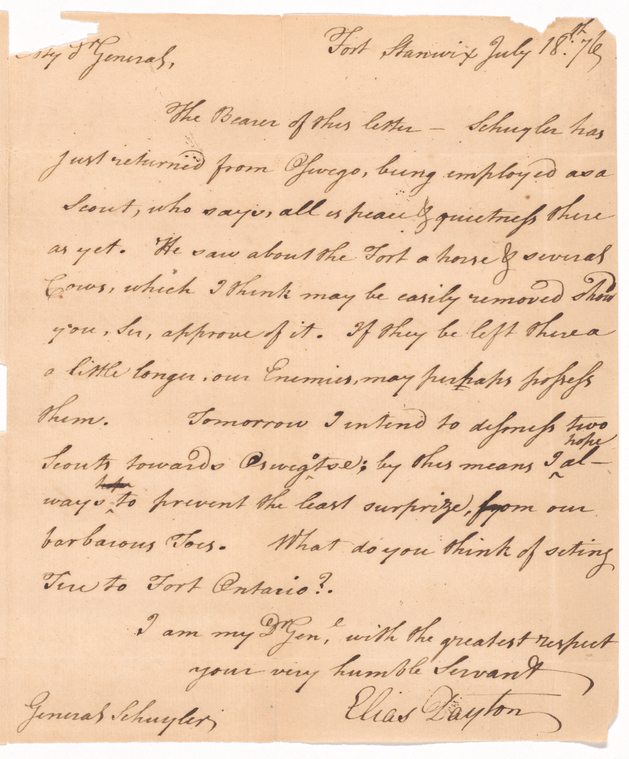 My Dr General,     Fort Stanwix July 18th. 76
The Bearer of this letter – Schuyler has
just returned from Oswego, being employed as a
Scout, who says, all is peace & quietness there
as yet. He saw about the Fort a horse & several
Cows, which I think may be easily removed shoud
you, Sir, approve of it. If they be left there a
a little longer, our Enemies, may perhaps possess
them. Tomorrow I intend to dismiss two
hope
Scouts towards Oswegotse; by this means I al–
ways to prevent the least surprize, from our
barbarous Foes. What do you think of seting
Fire to Fort Ontario?.
I am my Dr Genl, with the greatest respect
your very humble Servant
General Schuyler     Elias Dayton